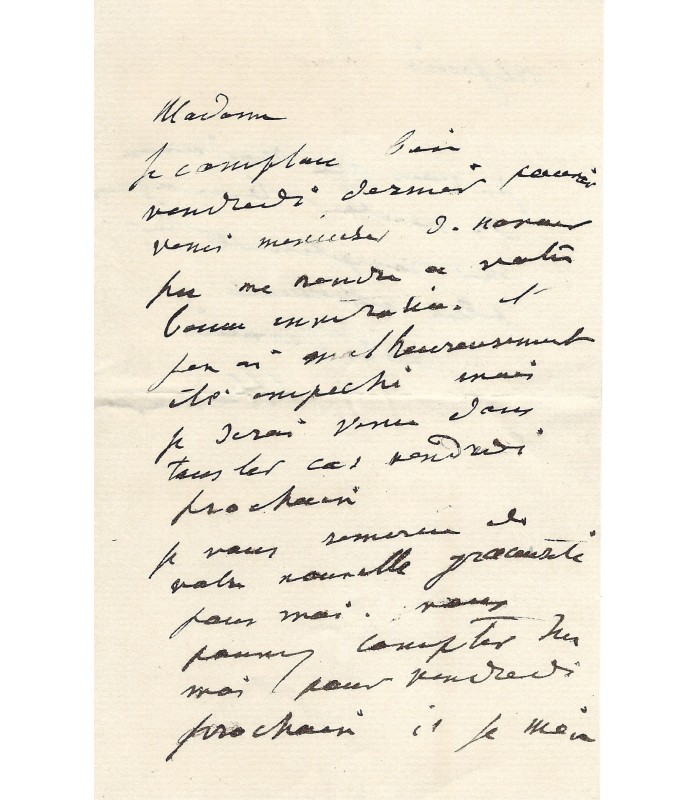 Madame
Je comptais bien
vendredi dernier pouvoir
venir m'excuser de n'avoir
pu me rendre a votre
bonne invitation. et
j'en ai malheureusement
été empeché mais
je serai venu dans
tous les cas vendredi
prochain
je vous remercie de
votre nouvelle gracieuseté
pour moi. vous
pouvez compter sur
moi pour vendredi
prochain et je